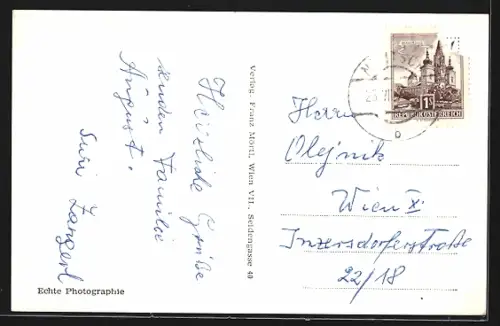 Herzliche Grüße
senden Familie
August.
Susi Zangerl
Echte Photographie
Verlag Franz Mörtl, Wien VII., Seidengasse 49
REPUBLIK ÖSTERREICH
Herrn
Olejnik
Wien X.
Inzersdorferstraße
22/18